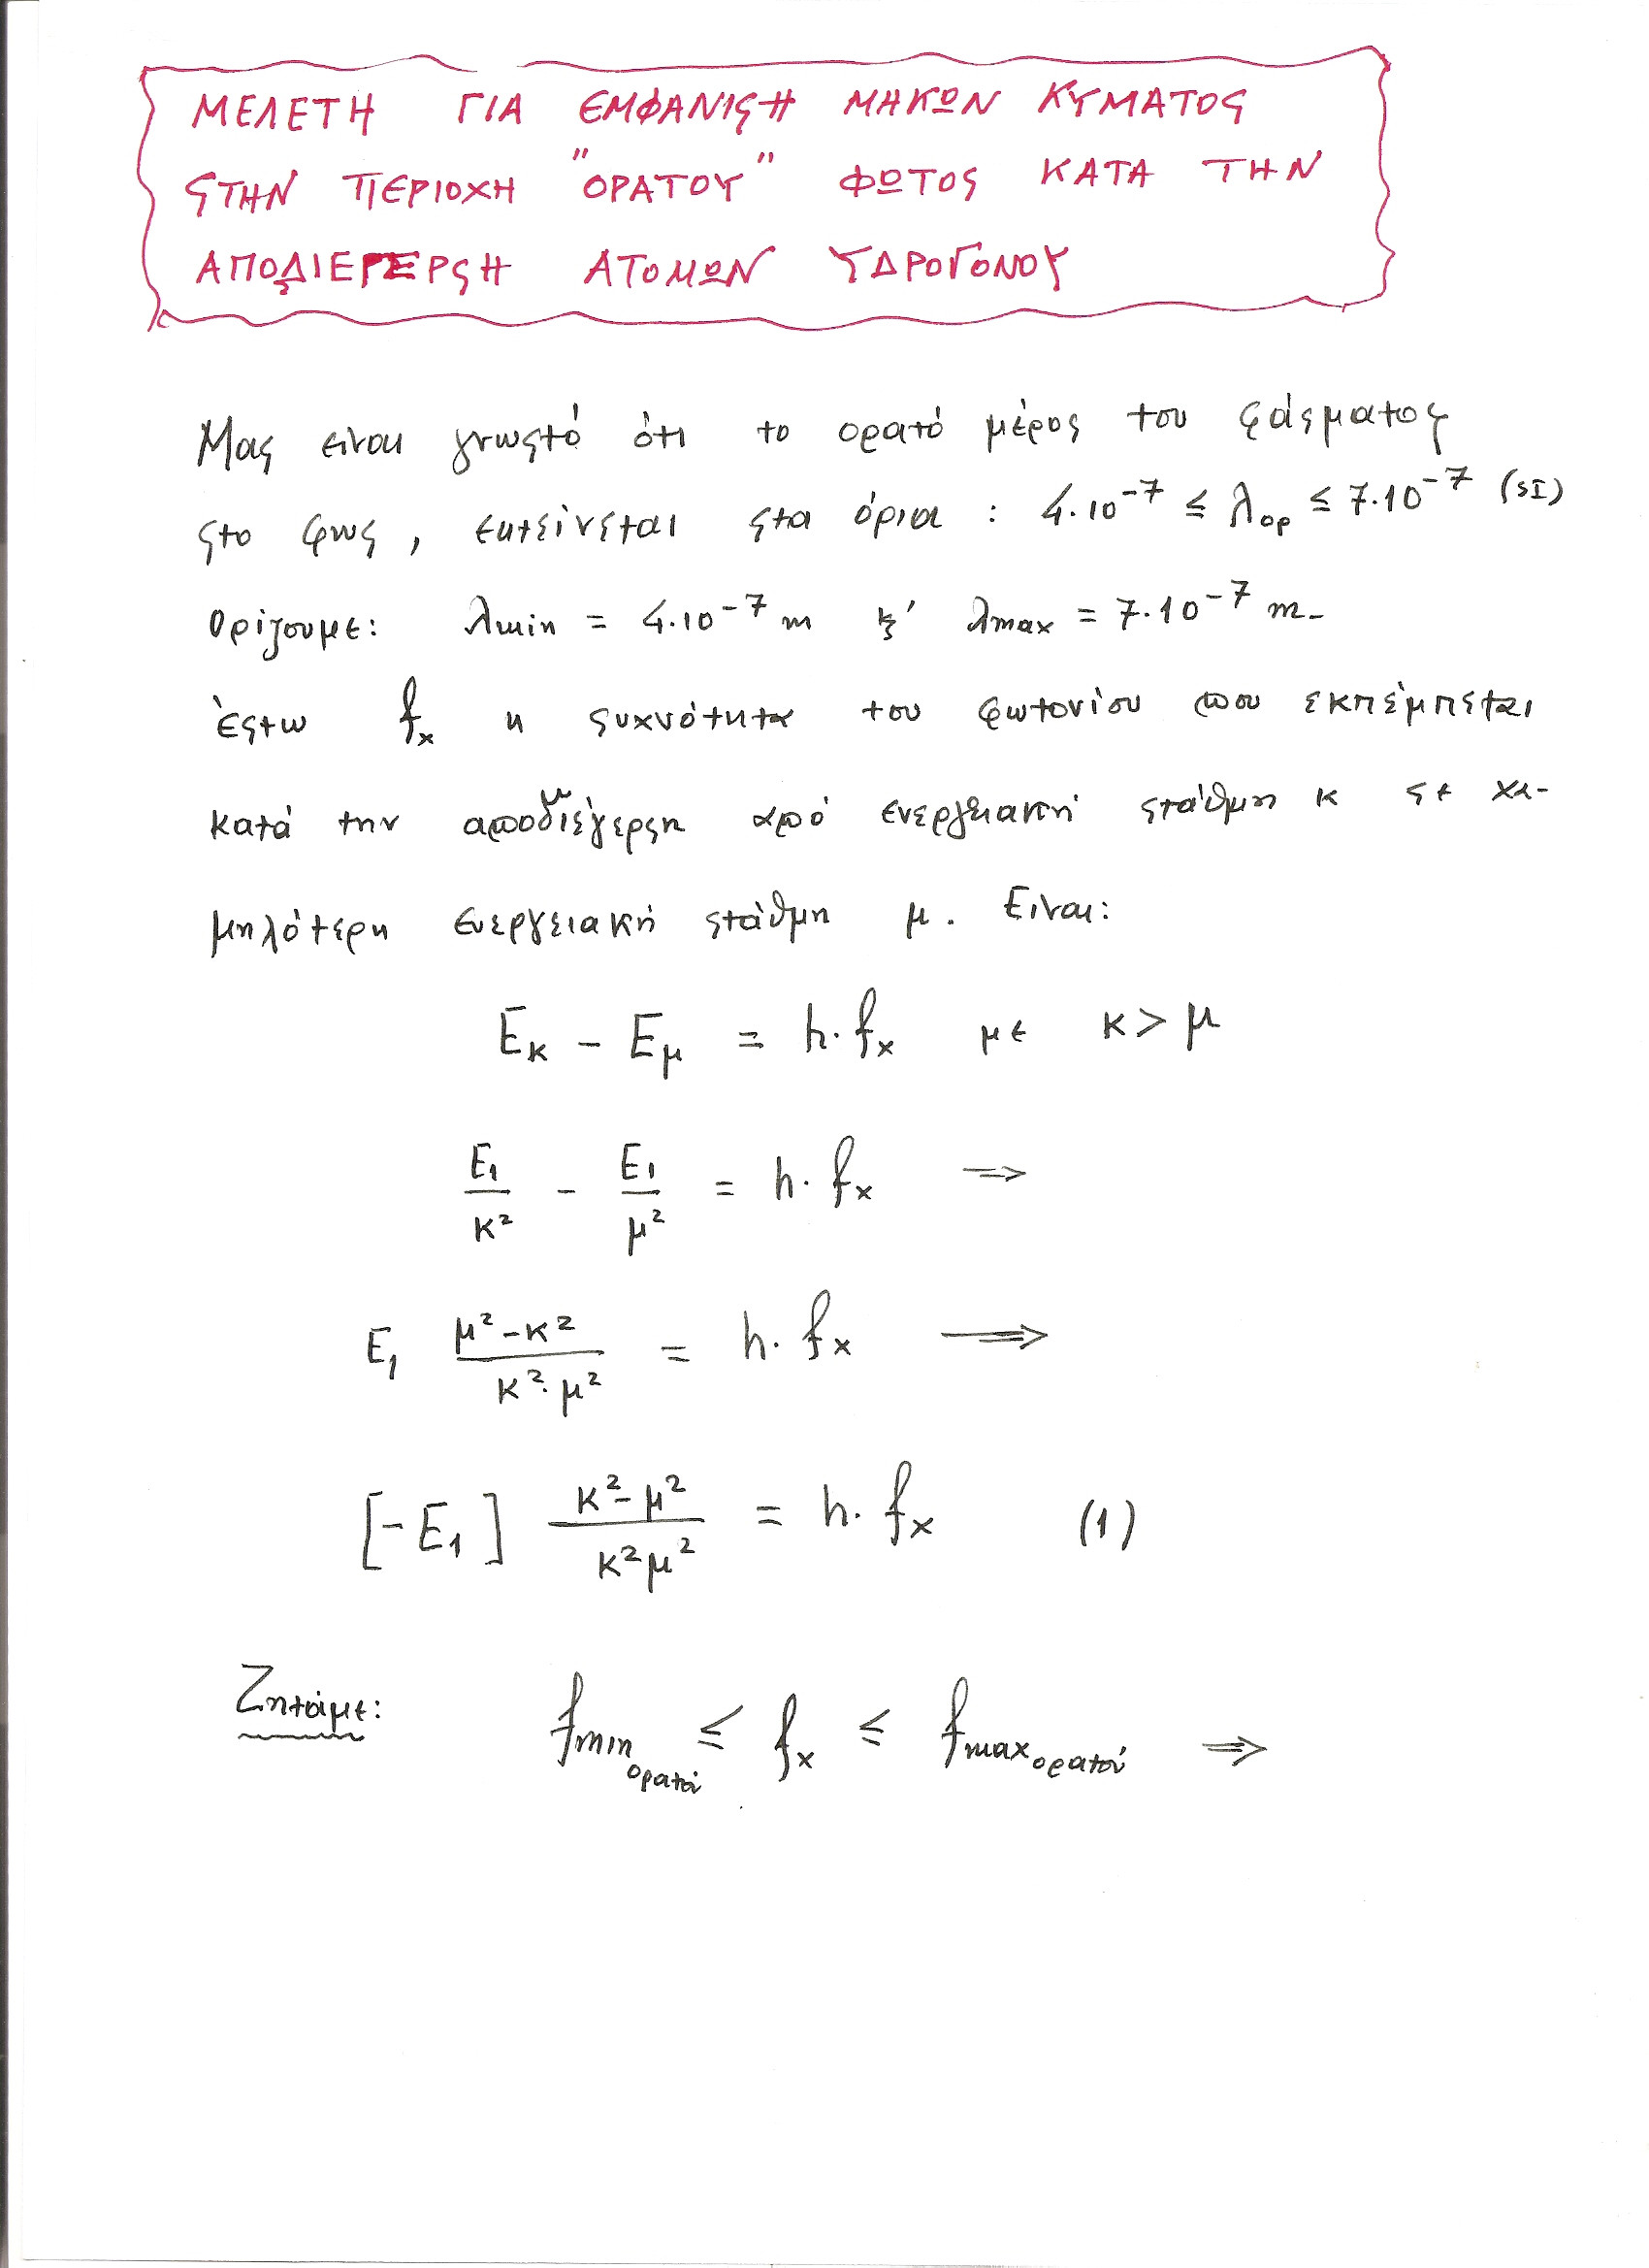 ΜΕΛΕΤΗ ΓΙΑ ΕΜΦΑΝΙΣΗ ΜΗΚΩΝ ΚΥΜΑΤΟΣ
ΣΤΗΝ ΠΕΡΙΟΧΗ "ΟΡΑΤΟΥ" ΦΩΤΟΣ ΚΑΤΑ ΤΗΝ
ΑΠΟΔΙΕΓΕΡΣΗ ΑΤΟΜΩΝ ΥΔΡΟΓΟΝΟΥ
Μας είναι γνωστό ότι το ορατό μέρος του φάσματος
στο φως, εκτείνεται στα όρια : 4.10⁻⁷ ≤ λορ ≤ 7.10⁻⁷ (SI)
Ορίζουμε: λmin = 4.10⁻⁷ m κ' λmax = 7.10⁻⁷ m.
έστω fx η συχνότητα του φωτονίου που εκπέμπεται
κατά την αποδιέγερση από ενεργειακή στάθμη κ σε χα-
μηλότερη ενεργειακή στάθμη μ. Είναι:
Εκ - Εμ = h.fx με κ > μ
Ε₁/κ² - Ε₁/μ² = h.fx ⇒
Ε₁ μ²-κ²/κ².μ² = h.fx ⇒
[-Ε₁] κ²-μ²/κ²μ² = h.fx (1)
Ζητάμε: fmin ορατού ≤ fx ≤ fmax ορατού ⇒